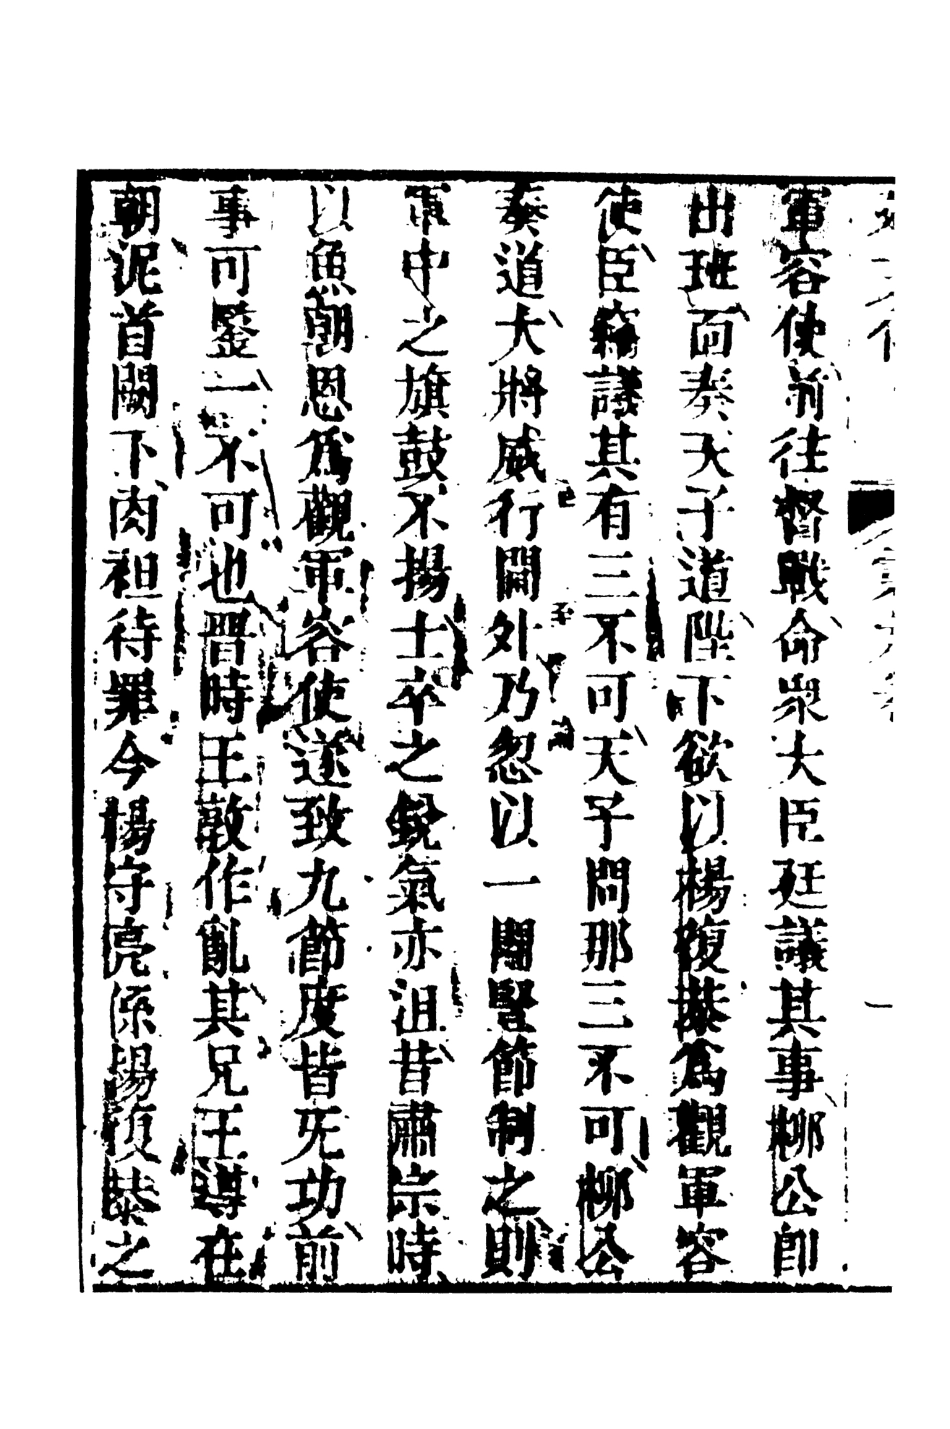 軍容使前往督戰命衆大臣廷議其事柳公卽
出班面奏天子道陛下欲以楊復恭爲觀軍容
使臣竊議其有三不可天子問那三不可柳公
奏道大將威行閫外乃忽以一閹豎節制之則
軍中之旗鼓不揚士卒之銳氣亦沮昔肅宗時
以魚朝恩爲觀軍容使遂致九節度皆旡功前
事可鑒一不可也晋時王敦作亂其兄王導在
朝泥首闕下肉袒待罪今楊守亮係楊復恭之